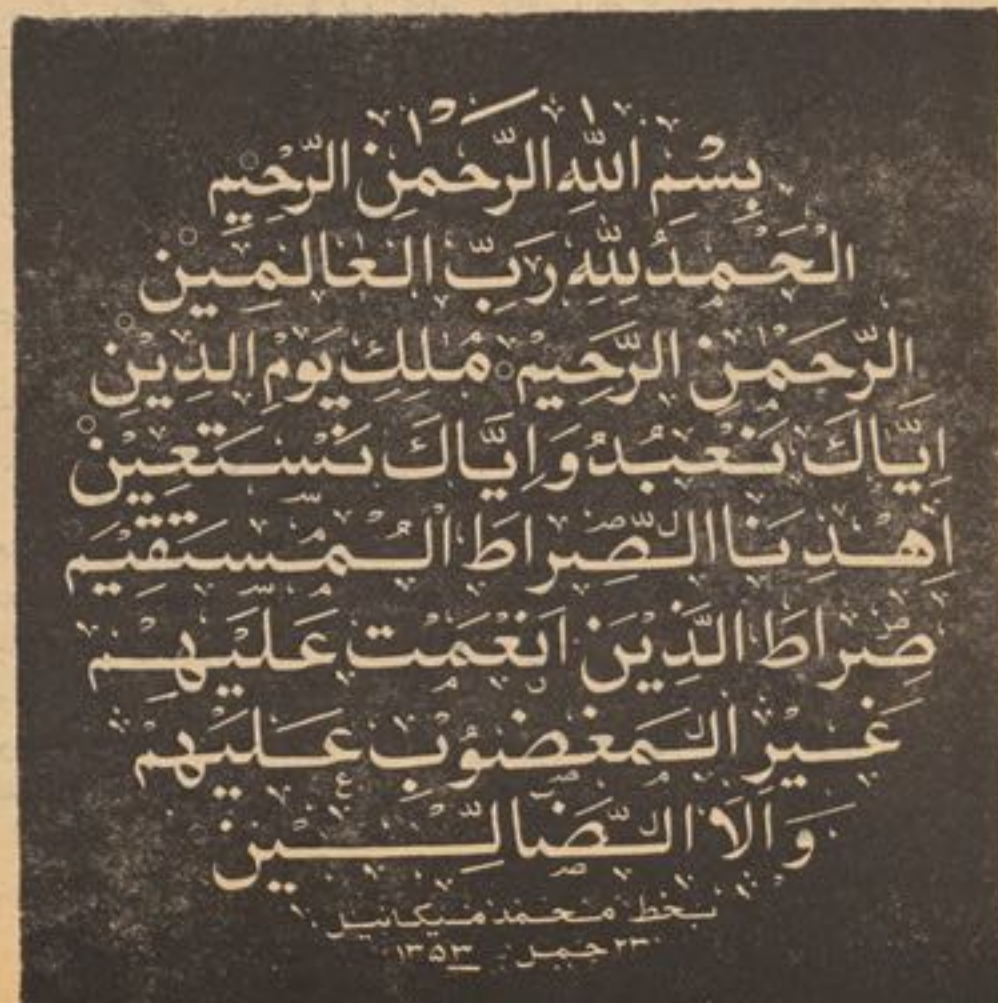 بِسْمِ اللّٰهِ الرَّحْمٰنِ الرَّحِيْمِ
الْحَمْدُ لِلّٰهِ رَبِّ الْعَالَمِيْن
الرَّحْمٰنِ الرَّحِيْمِ مٰلِكِ يَوْمِ الدِّيْنِ
اِيَّاكَ نَعْبُدُ وَ اِيَّاكَ نَسْتَعِيْنْ
اِهْدِنَا الصِّرَاطَ الْمُسْتَقِيْمَ
صِرَاطَ الَّذِيْنَ اَنْعَمْتَ عَلَيْهِمْ
غَيْرِ الْمَغْضُوْبِ عَلَيْهِمْ
وَلَا الضَّالِّيْن
بخط محمد ميكائيل
٢٣ جمل ١٣۵٣